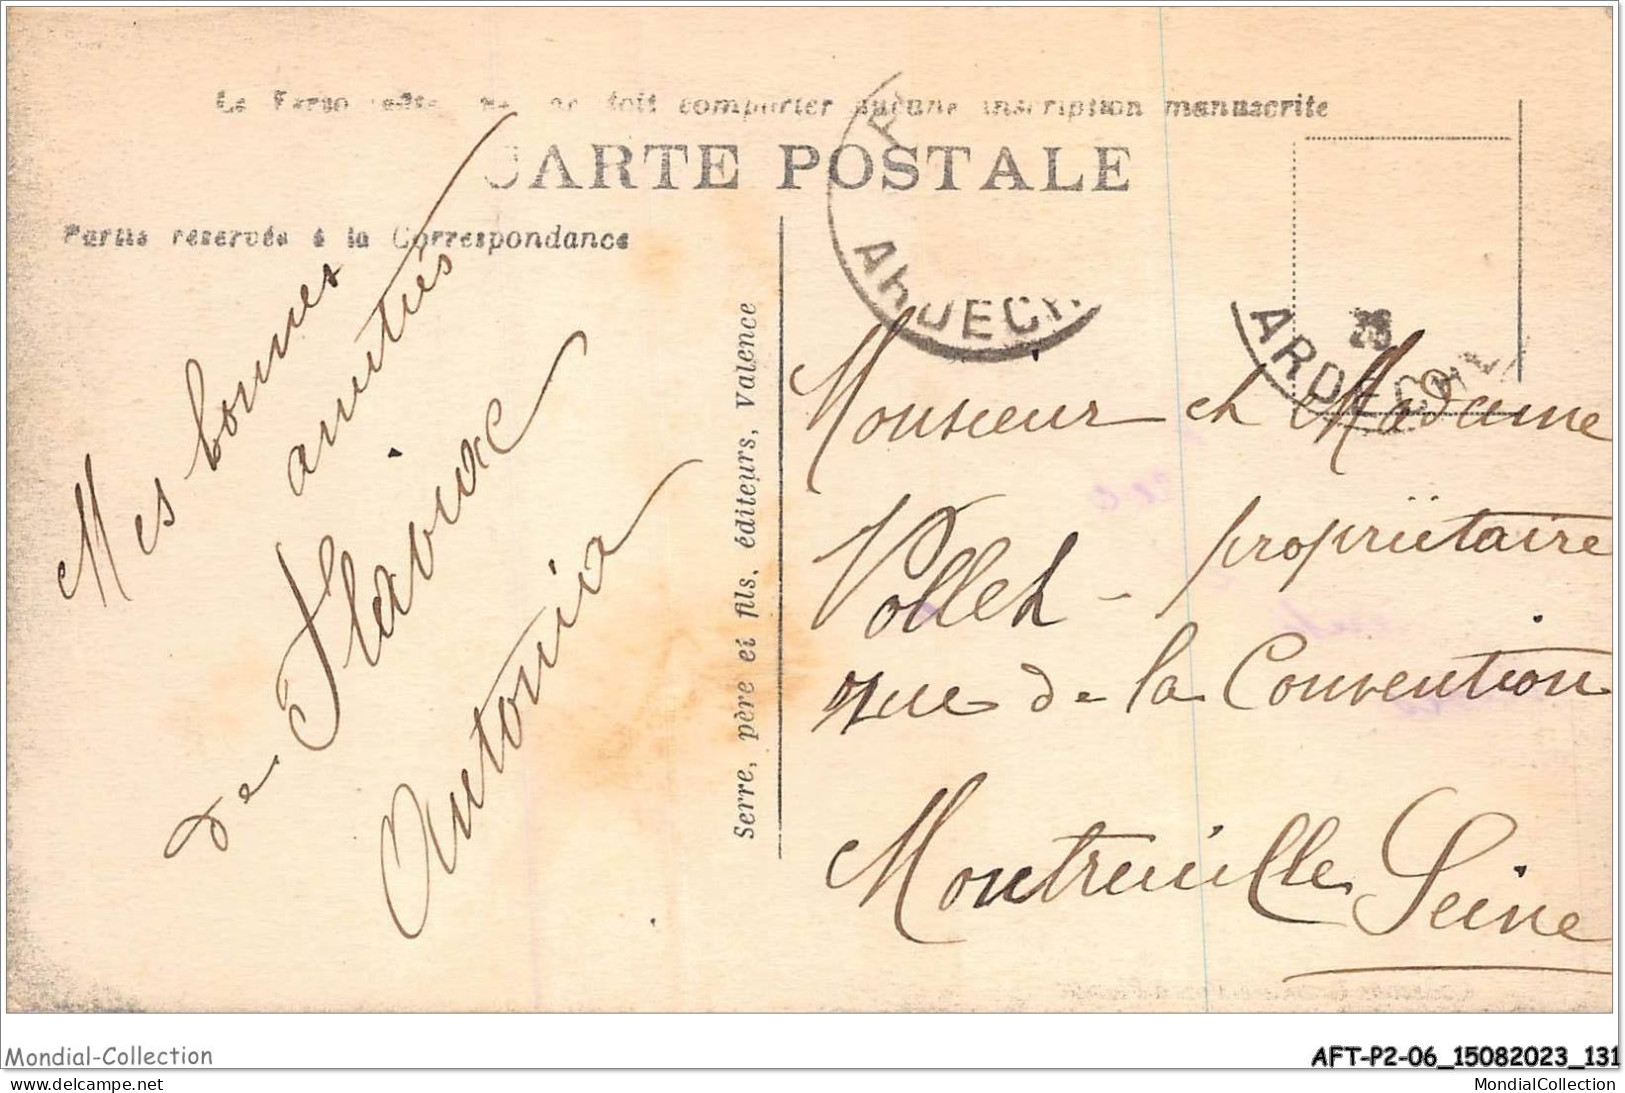 doit comporter aucune inscription manuscrite
CARTE POSTALE
Partie réservée à la Correspondance
Mes bonnes
amitiés
de Flaviac
Antonia
Serre, père et fils, éditeurs, Valence
ARDECH
ARDECHE
Monsieur et Madame
Vollet - propriëtaire
rue de la Convention
Montreuille Seine
Mondial-Collection
AFT-P2-06_15082023_131
delcampe.net
MondialCollection